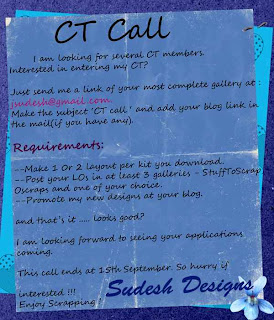 CT Call
I am looking for several CT members.
Interested in entering my CT?
Just send me a link of your most complete gallery at
jsudesh@gmail.com.
Make the subject 'CT call' and add your blog link in
the mail(if you have any).
Requirements:
--Make 1 Or 2 layout per kit you download.
--Post your LOs in at least 3 galleries - StuffToScrap
Oscraps and one of your choice.
--Promote my new designs at your blog.
and that's it ..... looks good?
I am looking forward to seeing your applications
coming.
This call ends at 15th September. So hurry if
interested !!!
Enjoy Scrapping
Sudesh Designs